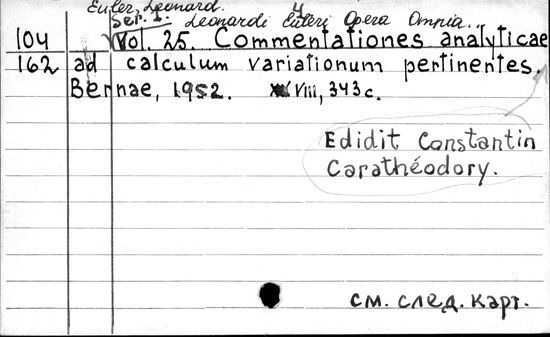 Euler, Leonard.
Ser. I. Leonardi Euleri Opera Omnia...
104 Vol. 25. Commentationes analyticae
162 ad calculum variationum pertinentes.
Bernae, 1952. VIII, 343 c.
Edidit Constantin
Carathéodory.
см. след. карт.